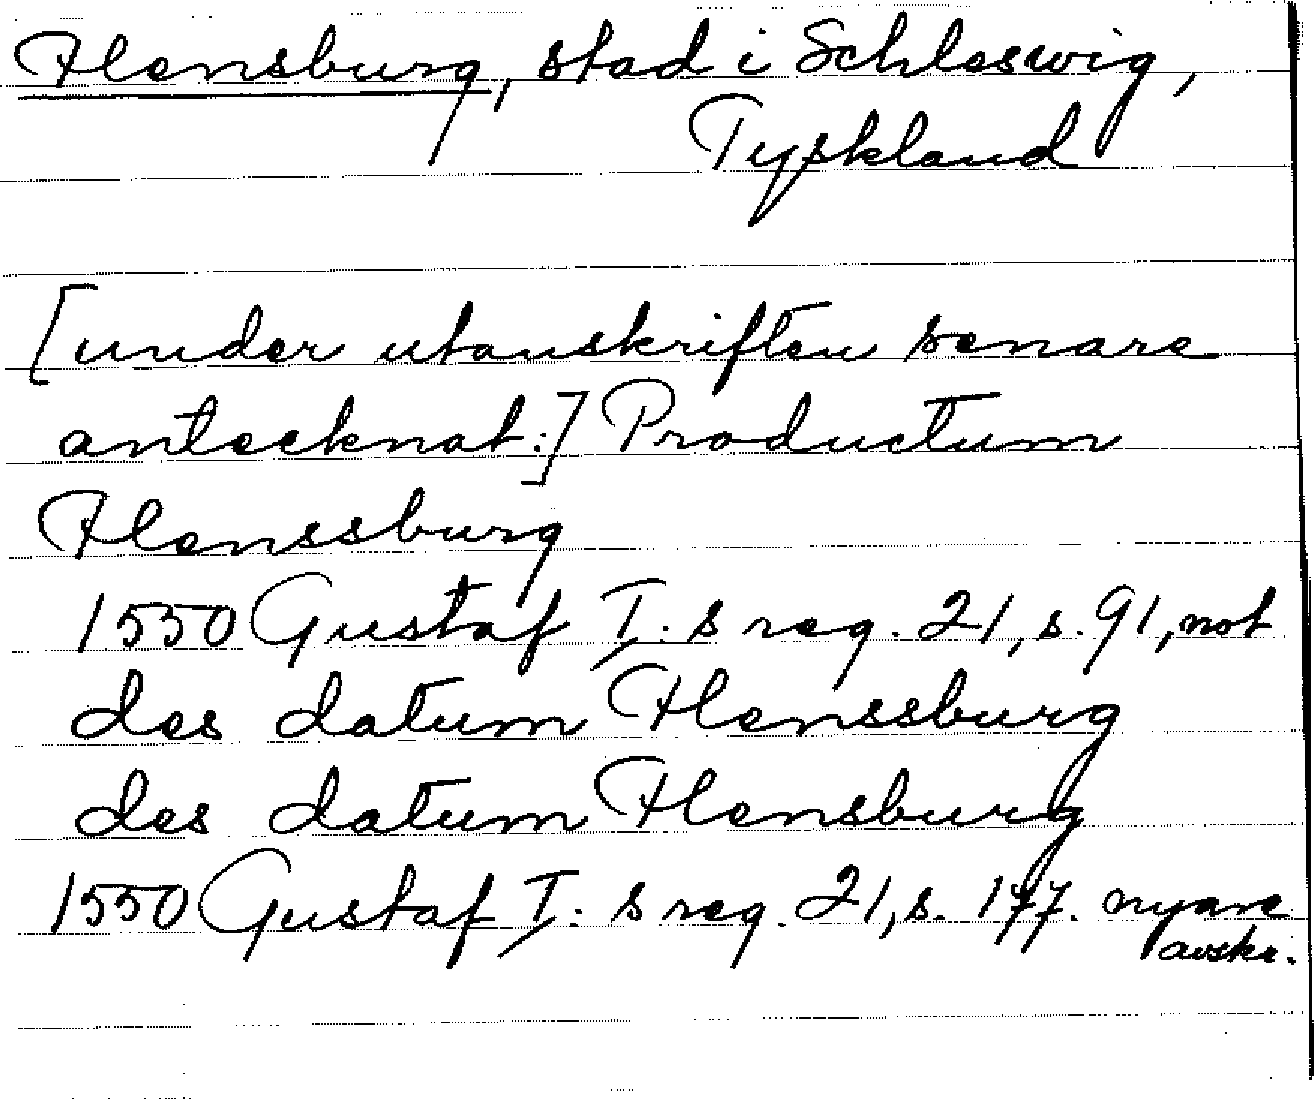 Flensburg, stad i Schleswig,
Tyskland
[under utanskriften senare
antecknat:] Productum
Flenssburg
1550 Gustaf I:s reg. 21, s. 91, not
des datum Flenssburg
des datum Flensburg
1550 Gustaf I:s reg. 21, s. 177. nyare
avskr.